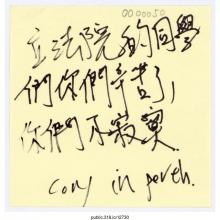 0000050
立法院的同學
們你們辛苦了,
你們不寂寞
cony in perth.
public.318.io/12730